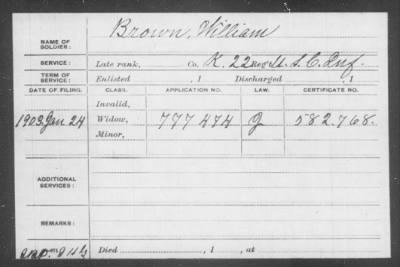 NAME OF SOLDIER: Brown, William
SERVICE: Late rank, Co. K, 22 Reg't U.S.C. Inf.
TERM OF SERVICE: Enlisted , 1 Discharged , 1
DATE OF FILING. CLASS. APPLICATION NO. LAW. CERTIFICATE NO.
Invalid,
1903 Jan 24 Widow, 777474 582.768.
Minor,
ADDITIONAL SERVICES:
REMARKS:
Died , 1 , at